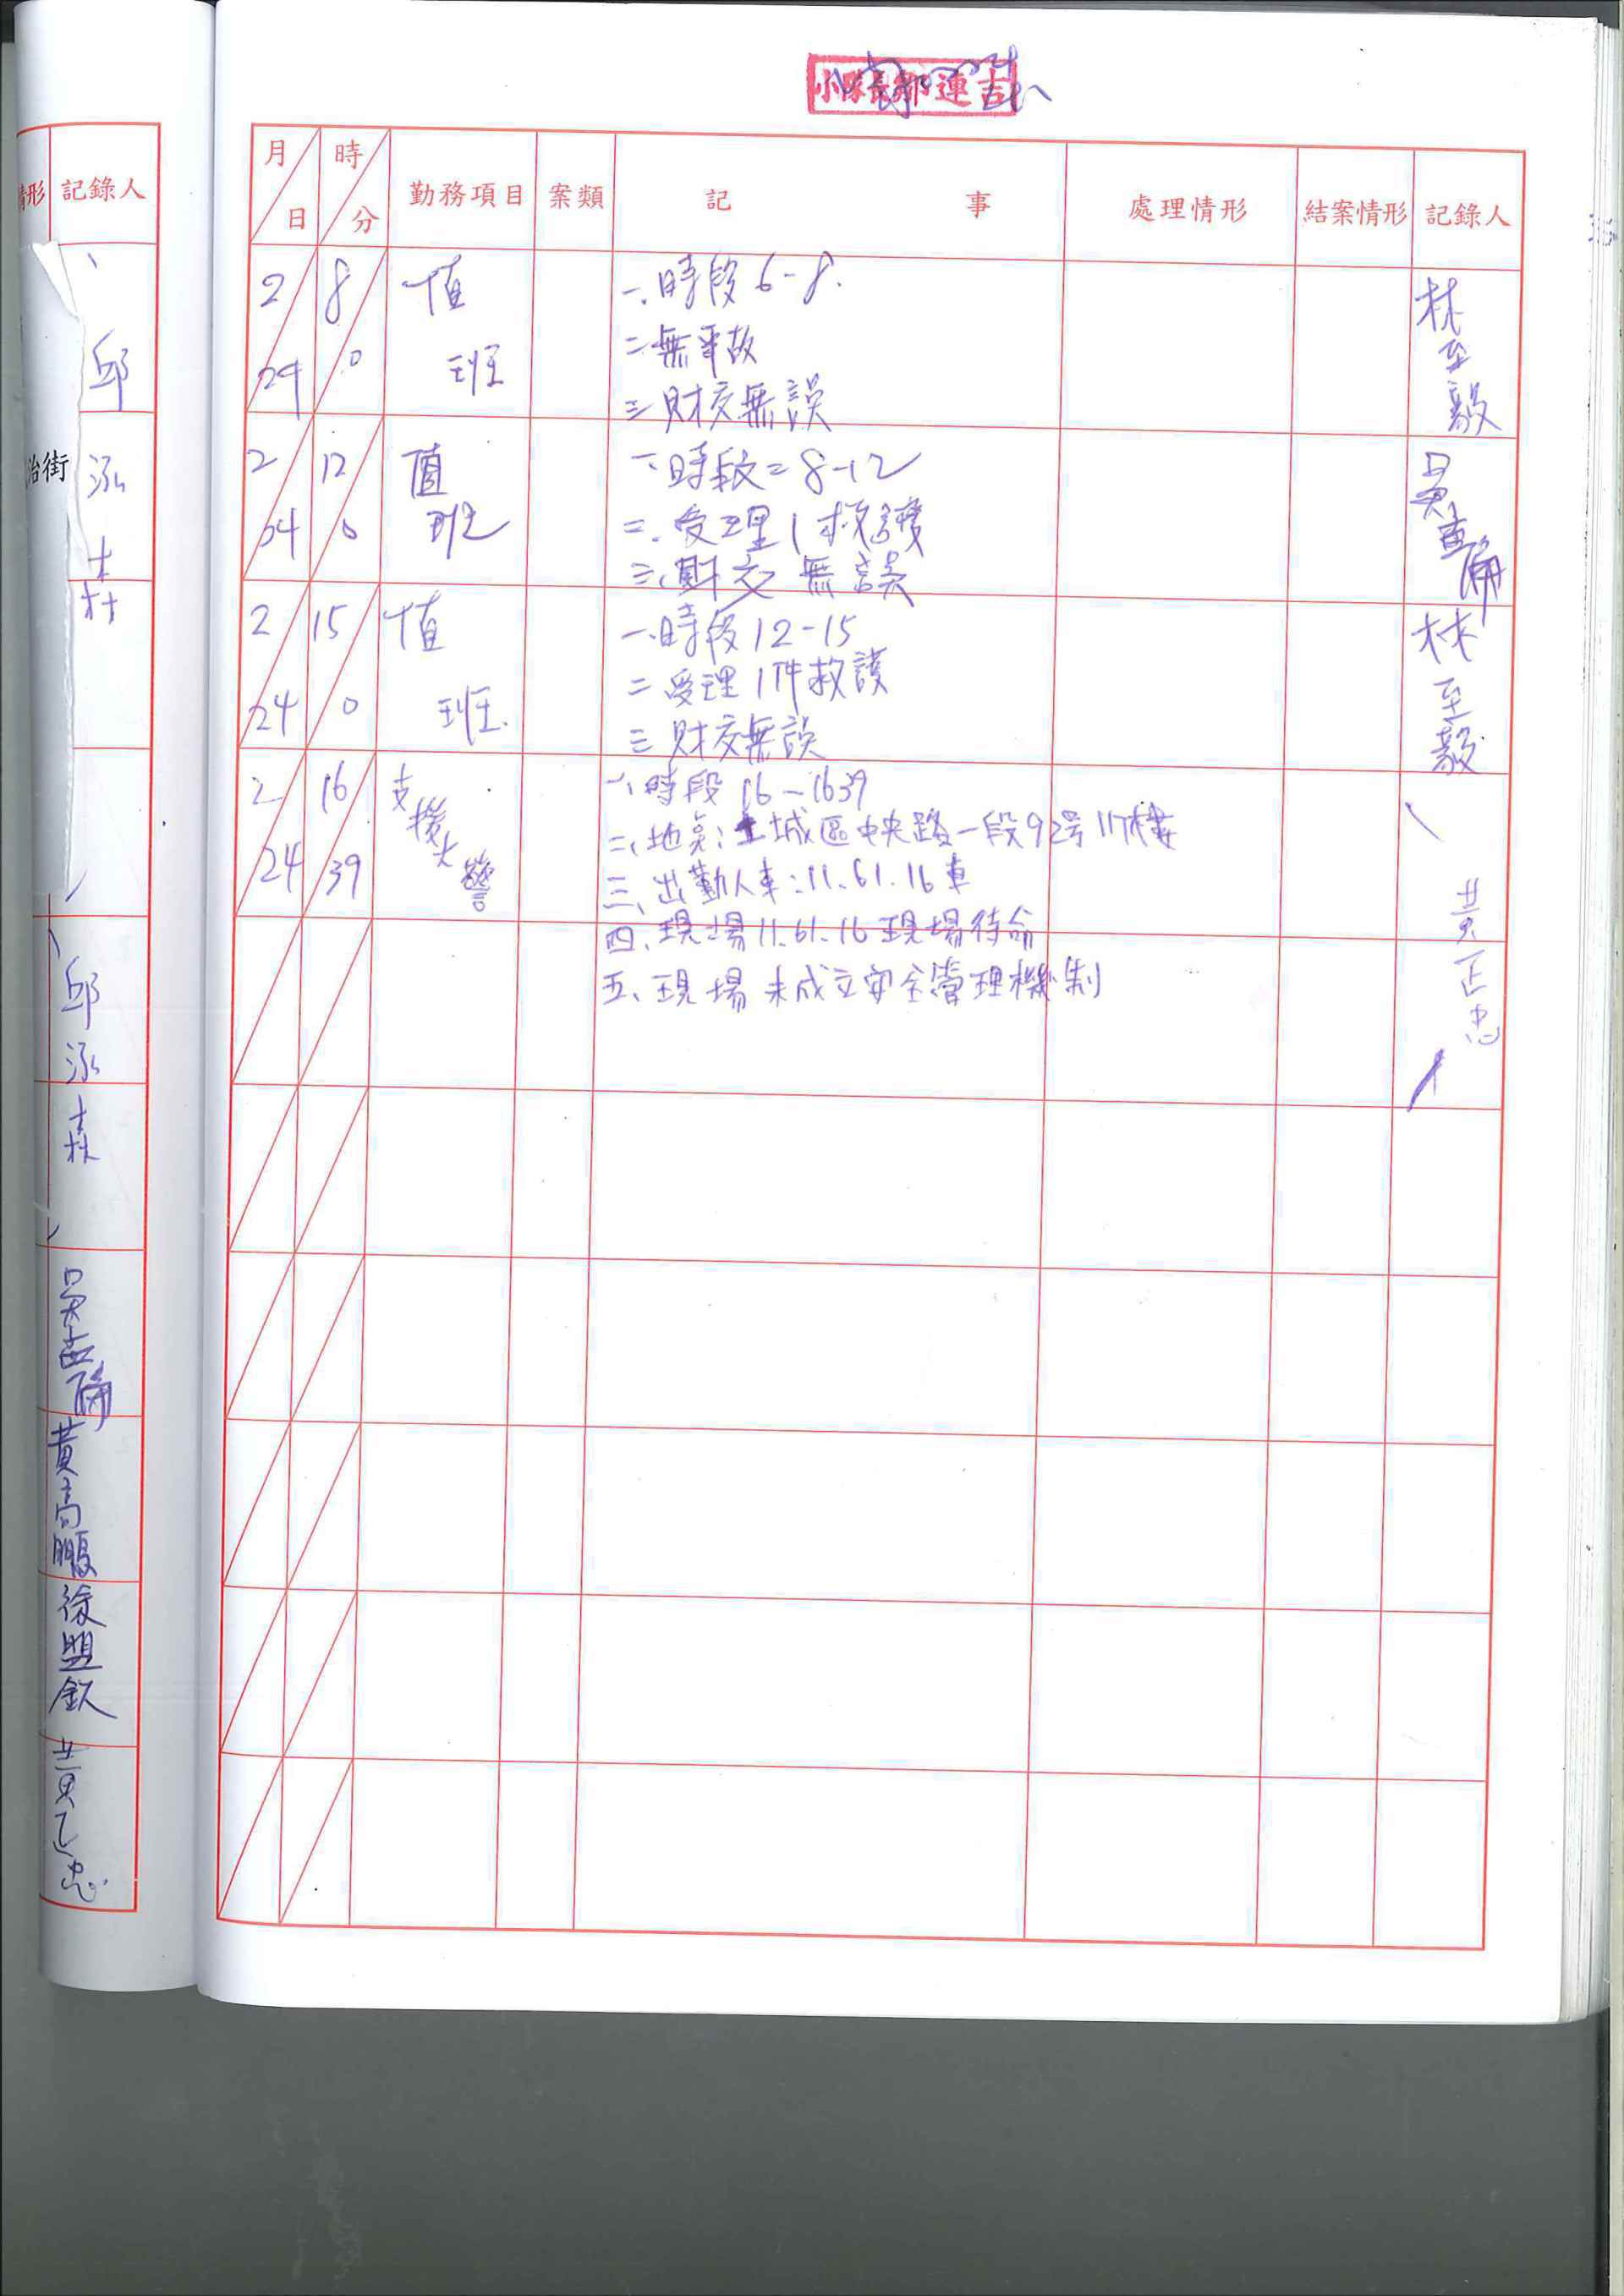 小隊長鄒連吉
情形 記錄人
邱泓森
治街
邱泓森
黃高鵬
徐盟欽
黃正忠
月 日 時 分 勤務項目 案類 記事 處理情形 結案情形 記錄人
2 24 8 0 值班
一、時段 6-8.
二、無事故
三、財交無誤
林至毅
2 24 12 0 值班
一、時段=8-12
二、受理1救護
三、財交無誤
2 24 15 0 值班
一、時段12-15
二、受理1件救護
三、財交無誤
林至毅
2 24 16 39 支援火警
一、時段 16-1639
二、地點:土城區中央路一段92號11樓
三、出勤人車:11、61、16車
四、現場11、61、16現場待命
五、現場未成立安全管理機制
黃正忠